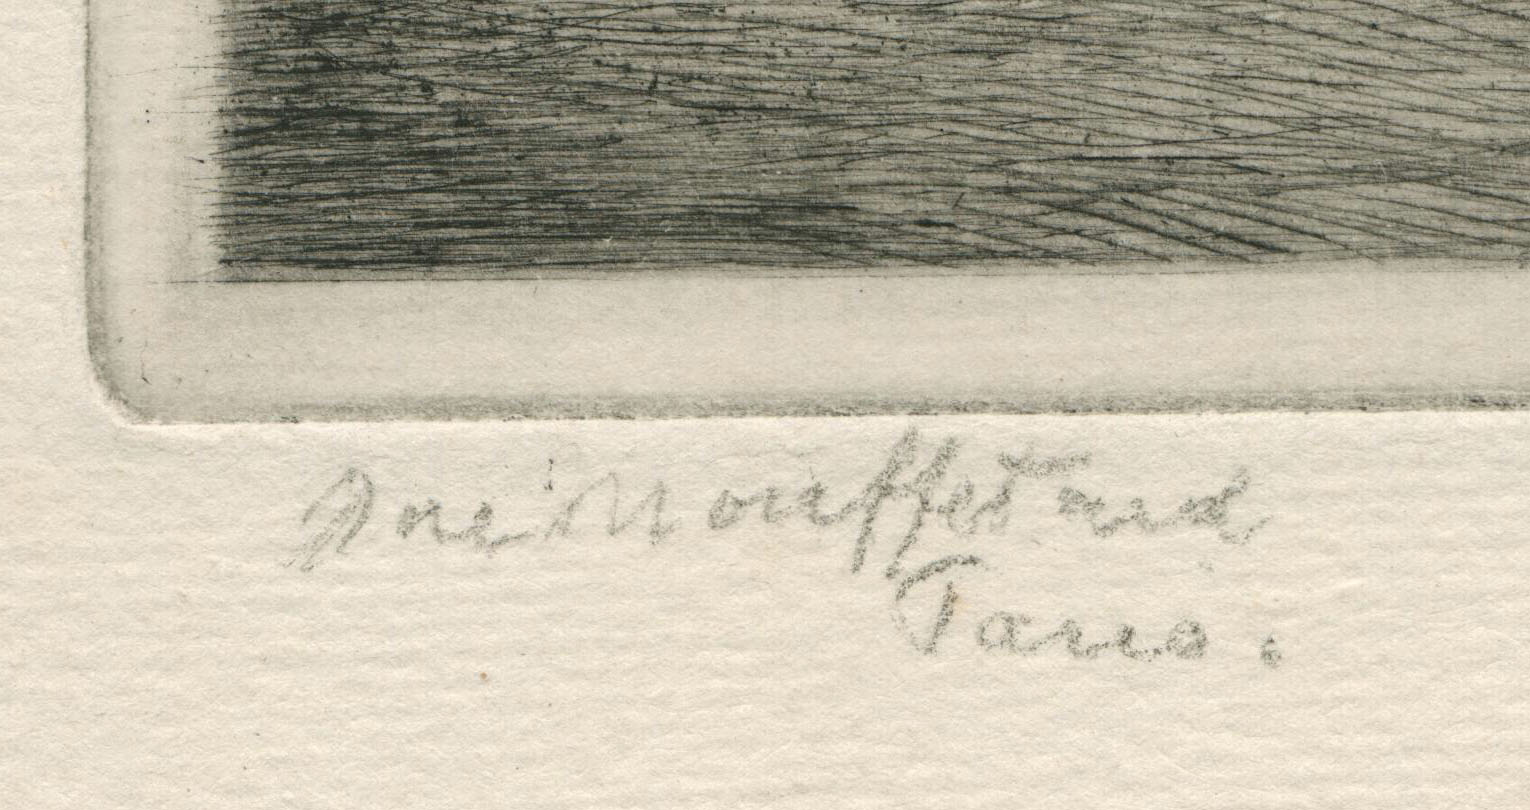 Rue Mouffetard
Paris.